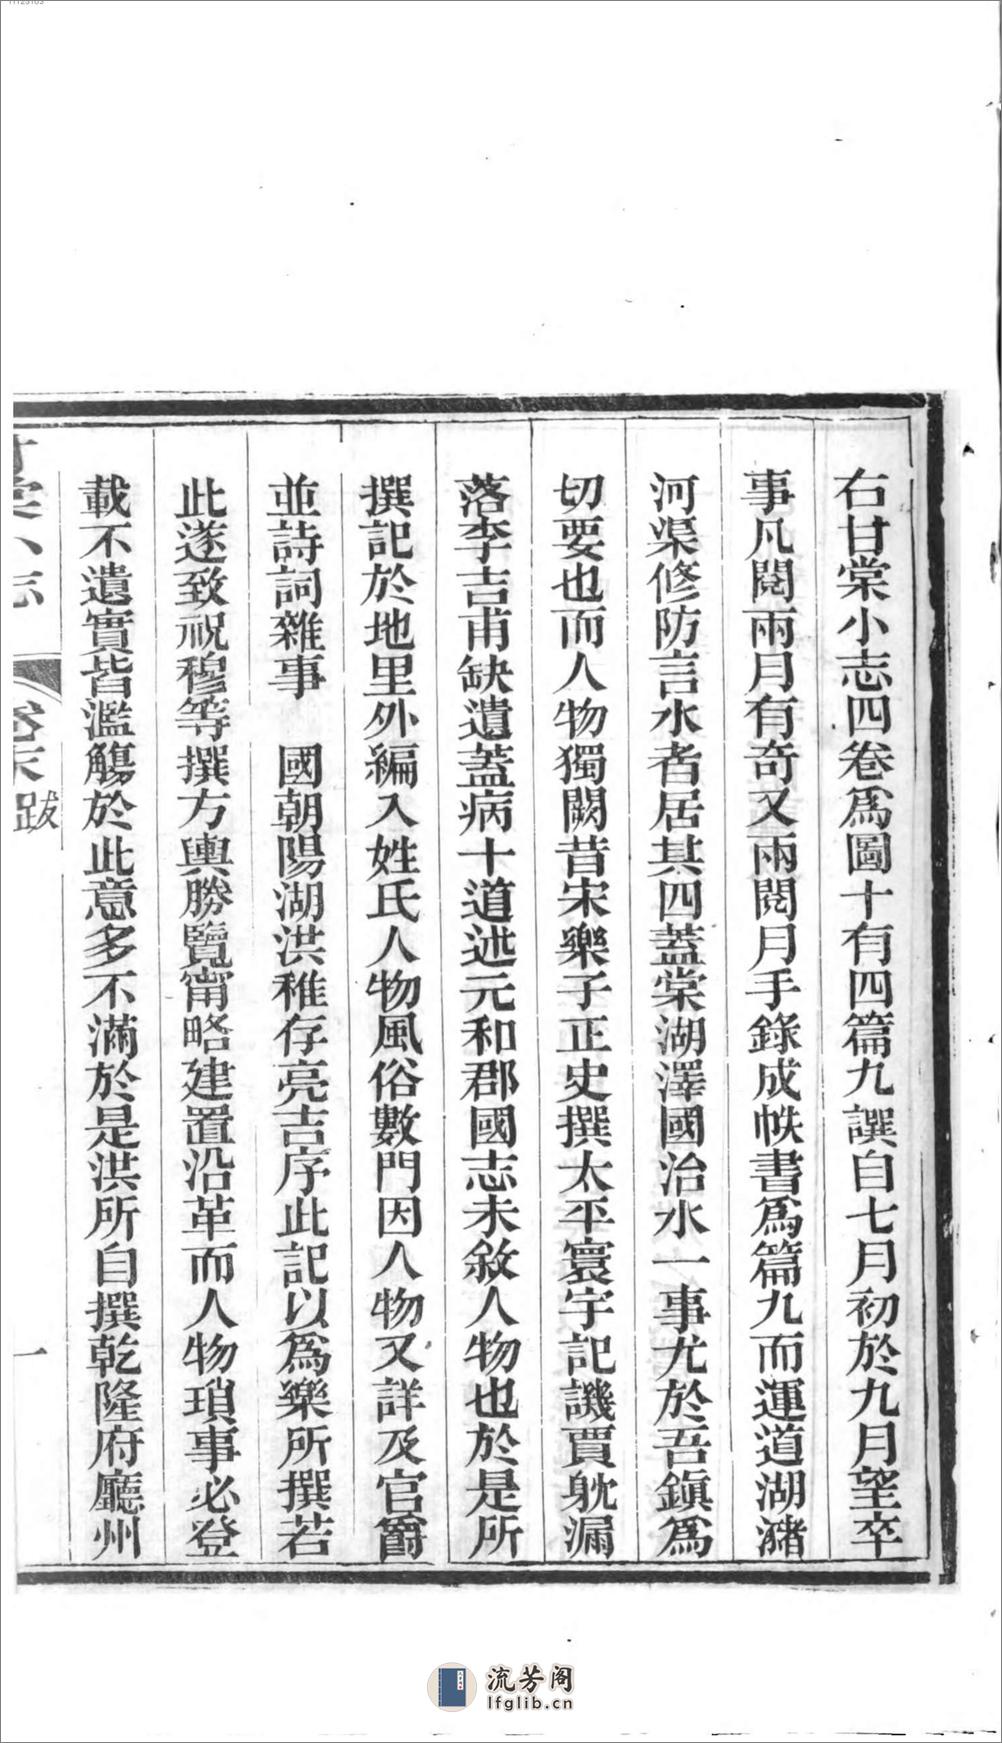 右甘棠小志四卷爲圖十有四篇九譔自七月初於九月望卒
事凡閱兩月有奇又兩閱月手錄成帙書爲篇九而運道湖瀦
河渠修防言水者居其四蓋棠湖澤國治水一事尤於吾鎭爲
切要也而人物獨闕昔宋樂子正史撰太平寰宇記譏賈躭漏
落李吉甫缺遺蓋病十道述元和郡國志未敘人物也於是所
撰記於地里外編入姓氏人物風俗數門因人物又詳及官爵
並詩詞雜事　國朝陽湖洪稚存亮吉序此記以爲樂所撰若
此遂致祝穆等撰方輿勝覽甯略建置沿革而人物瑣事必登
載不遺實皆濫觴於此意多不滿於是洪所自撰乾隆府廳州
甘棠小志
卷末跋
一
流芳阁
lfglib.cn